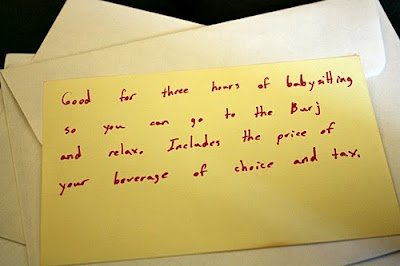 Good for three hours of babysitting
so you can go to the Burj
and relax. Includes the price of
your beverage of choice and tax.